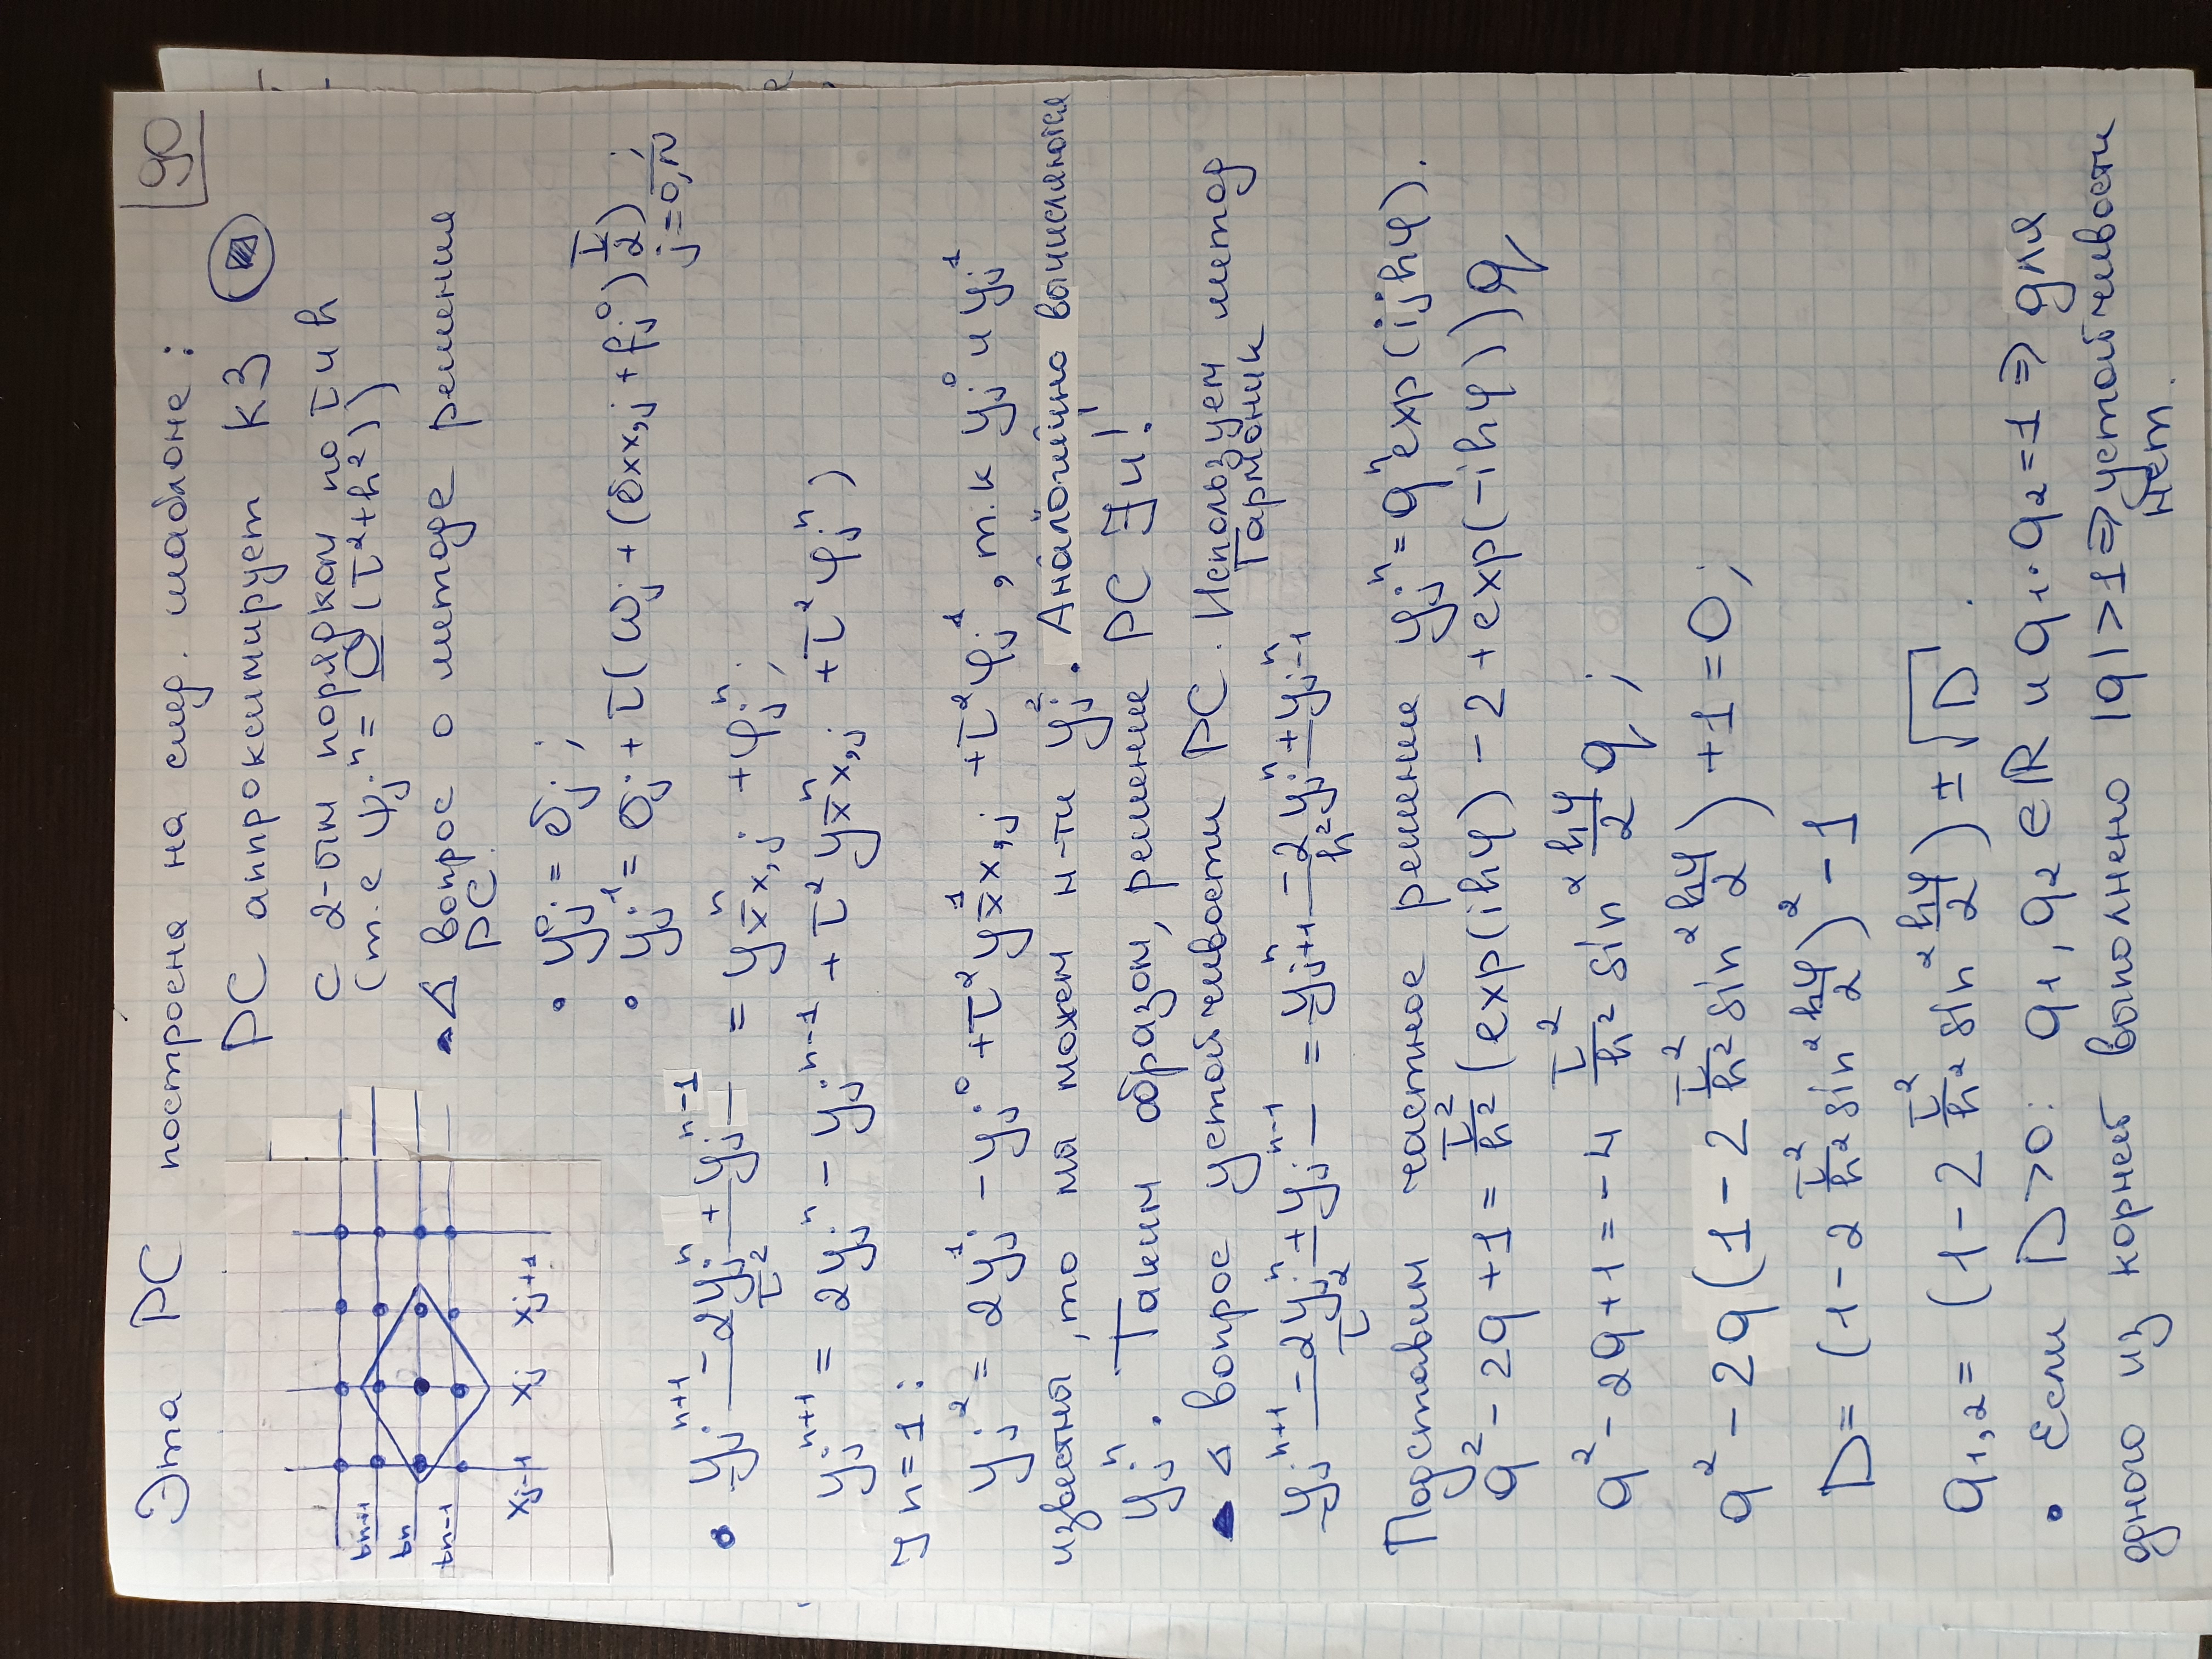 90
Эта РС построена на след. шаблоне:
tn+1
tn
tn-1
xj-1 xj xj+1
РС аппроксимирует КЗ
с 2-ым порядком по τ и h
(т.е ψj^n = O(τ²+h²))
◁ вопрос о методе решения
РС.
• yj^0 = σj;
• yj^1 = σj + τ(ωj + (σxx,j + fj^0) τ/2) j=0,N;
• (yj^n+1 - 2yj^n + yj^n-1)/τ² = yx̄x,j^n + φj^n;
yj^n+1 = 2yj^n - yj^n-1 + τ² yx̄x,j^n + τ² φj^n)
∃ n=1:
yj^2 = 2yj^1 - yj^0 + τ² yx̄x,j^1 + τ² φj^1, т.к yj^0 и yj^1
известны, то мы можем н-ти yj^2. Аналогично вычисляются
yj^n. Таким образом, решение РС ∃ и!
◁ вопрос устойчивости РС. Используем метод
гармоник
(yj^n+1 - 2yj^n + yj^n-1)/τ² = (yj+1^n - 2yj^n + yj-1^n)/h²
Подставим частное решение yj^n = q^n exp(ijhφ).
q² - 2q + 1 = τ²/h² (exp(ihφ) - 2 + exp(-ihφ))q
q² - 2q + 1 = -4 τ²/h² sin² hφ/2 q;
q² - 2q(1 - 2 τ²/h² sin² hφ/2) + 1 = 0;
D = (1 - 2 τ²/h² sin² hφ/2)² - 1
q1,2 = (1 - 2 τ²/h² sin² hφ/2) ± √D.
• Если D>0: q1, q2 ∈ R и q1·q2 = 1 ⇒ для
одного из корней выполнено |q|>1 ⇒ устойчивости
нет.